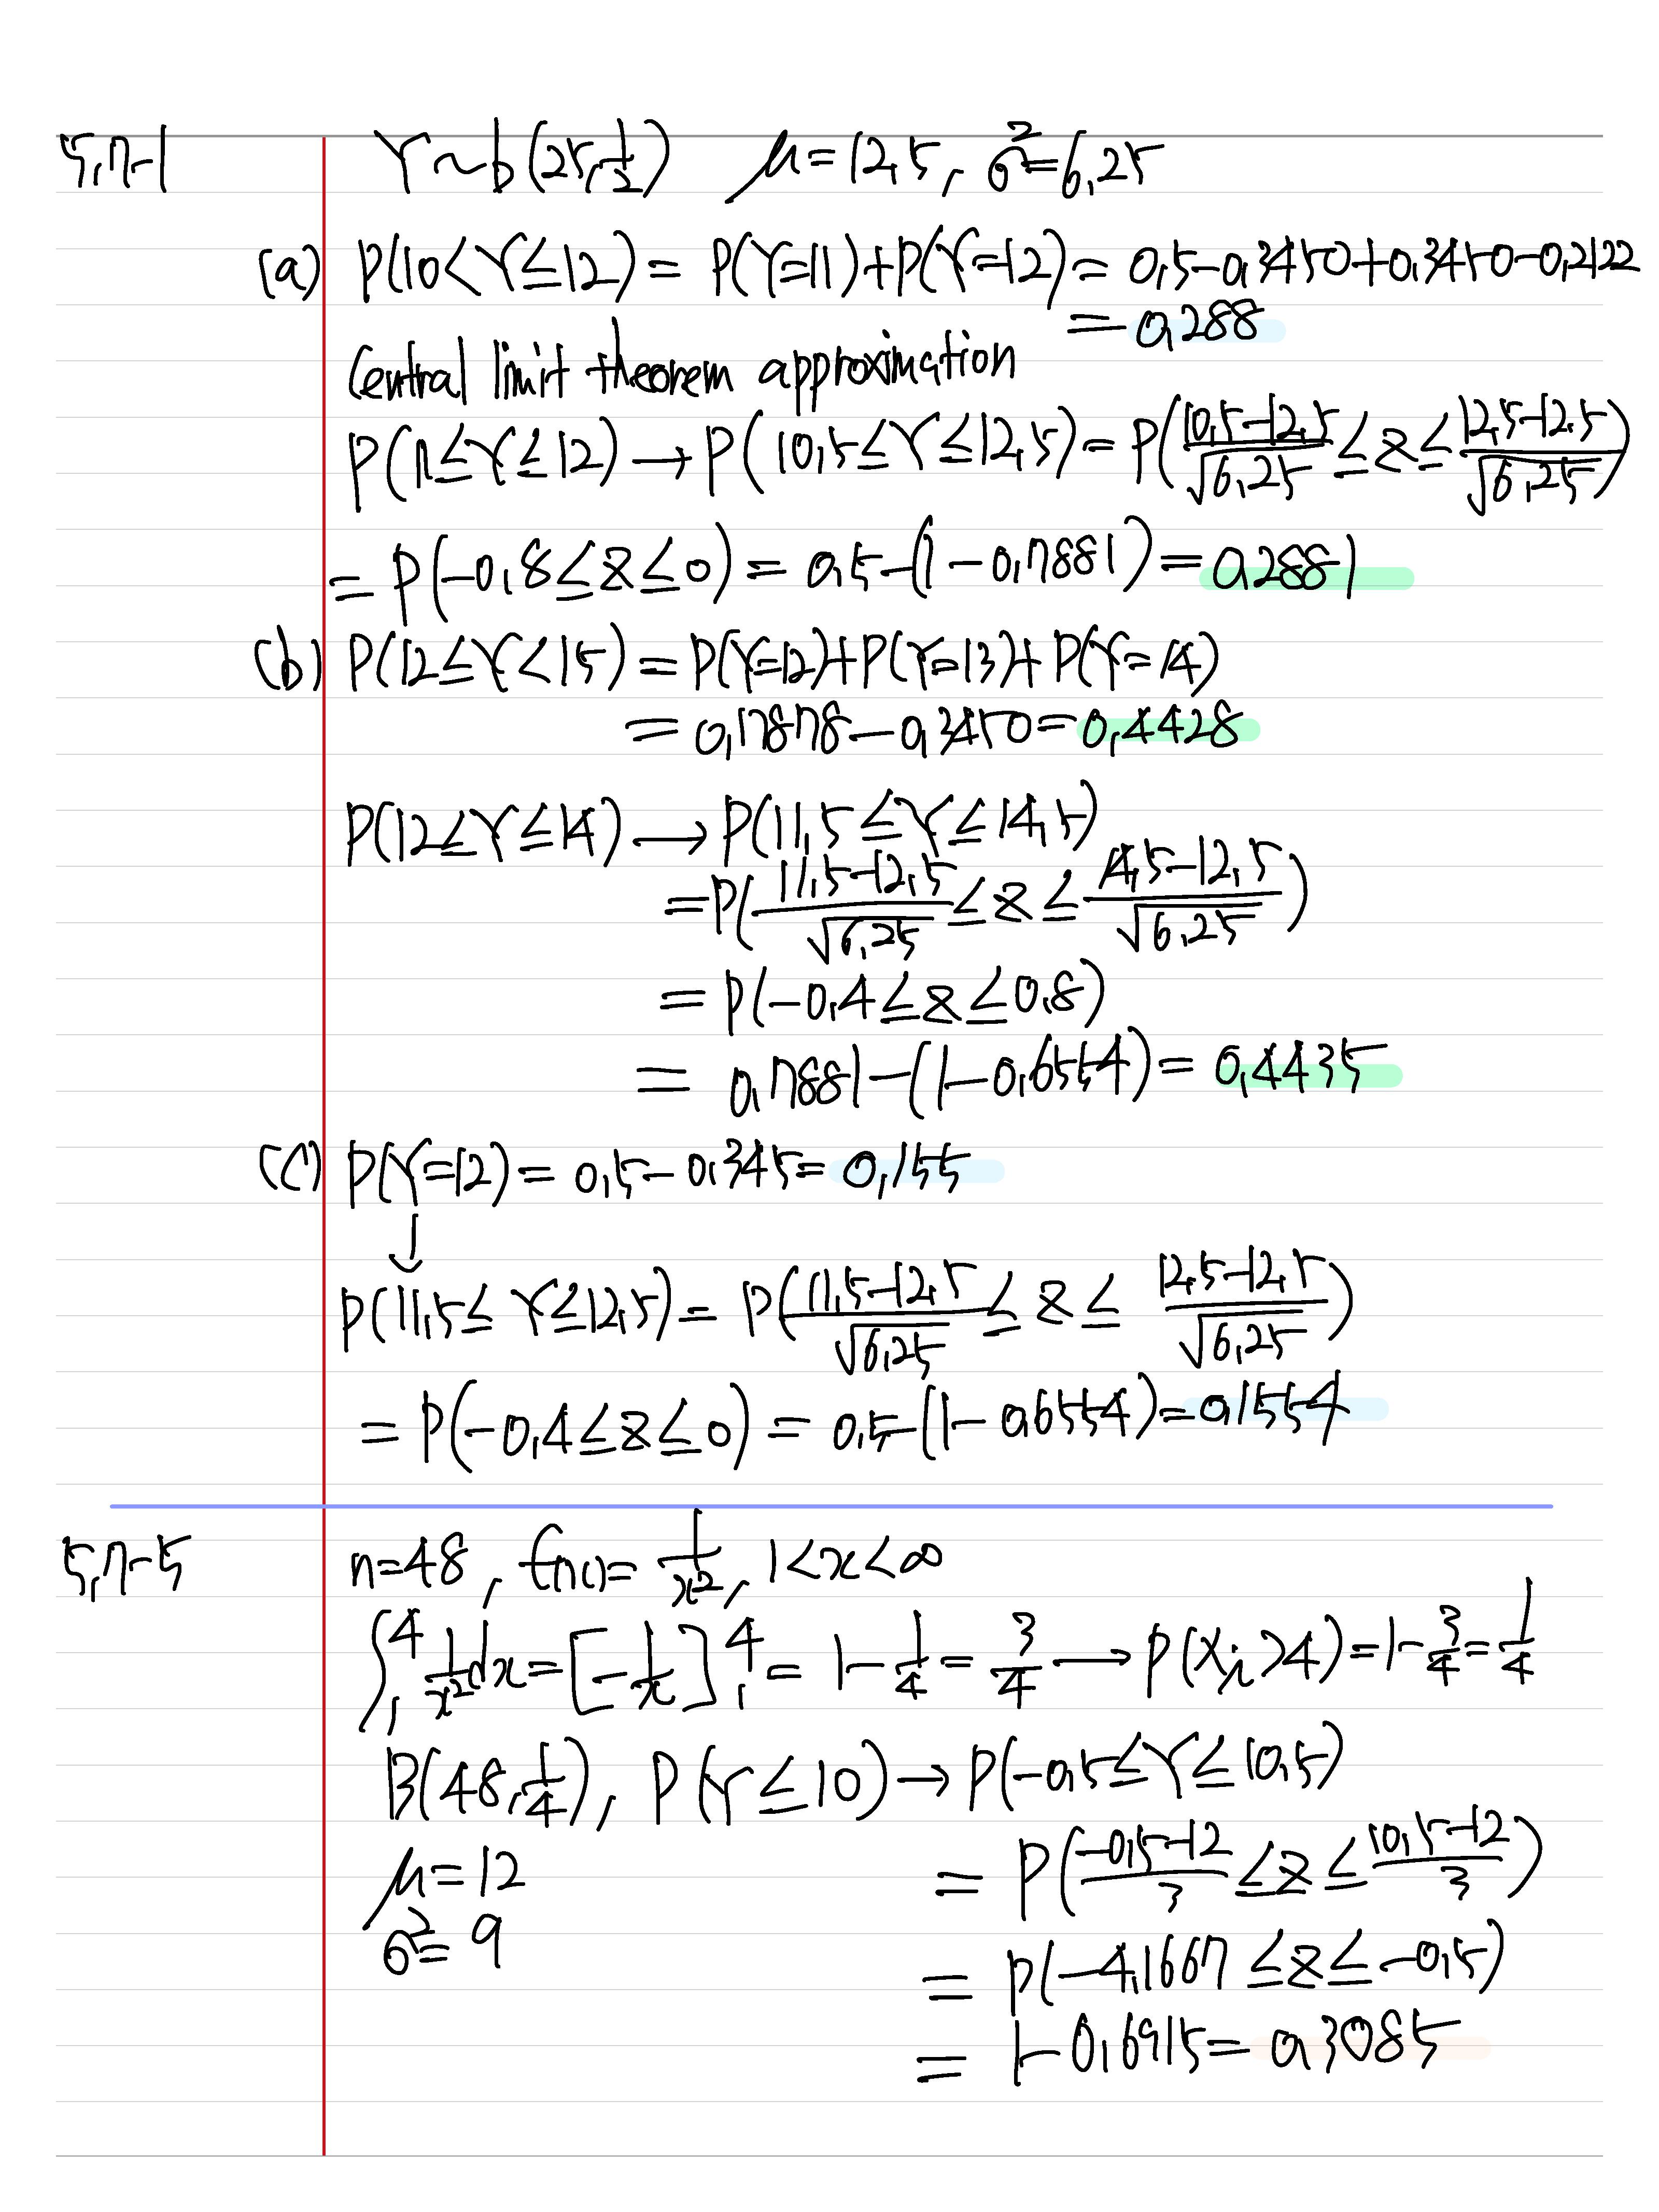 5.7-1 Y~b(25,1/2) μ=12.5, σ²=6.25
(a) P(10<Y≤12)= P(Y=11)+P(Y=12)= 0.5-0.3450+0.3450-0.2122
=0.288
Central limit theorem approximation
P(11≤Y≤12)→P(10.5≤Y≤12.5)=P((10.5-12.5)/√6.25≤z≤(12.5-12.5)/√6.25)
=P(-0.8≤z≤0)=0.5-(1-0.7881)=0.2881
(b) P(12≤Y<15)=P(Y=12)+P(Y=13)+P(Y=14)
=0.7878-0.3450=0.4428
P(12≤Y≤14)→P(11.5≤Y≤14.5)
=P((11.5-12.5)/√6.25≤z≤(14.5-12.5)/√6.25)
=P(-0.4≤z≤0.8)
=0.7881-(1-0.6554)=0.4435
(c) P(Y=12)=0.5-0.345=0.155
↓
P(11.5≤Y≤12.5)=P((11.5-12.5)/√6.25≤z≤(12.5-12.5)/√6.25)
=P(-0.4≤z≤0)=0.5-(1-0.6554)=0.1554
5.7-5 n=48, f(x)=1/x², 1<x<∞
∫₁⁴ 1/x² dx=[-1/x]₁⁴=1-1/4=3/4→P(Xi>4)=1-3/4=1/4
B(48,1/4), P(Y≤10)→P(-0.5≤Y≤10.5)
μ=12 =P((-0.5-12)/3≤z≤(10.5-12)/3)
σ²=9 =P(-4.1667≤z≤-0.5)
=1-0.6915=0.3085